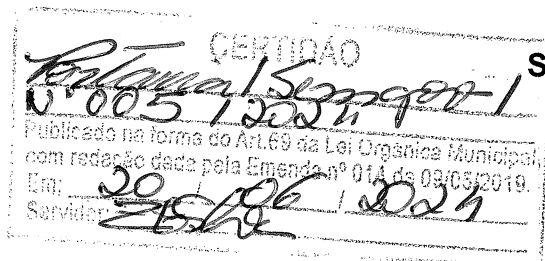 CERTIDÃO
S
Portaria /
Nº 005 / 2024
Publicado na forma do Art.69 da Lei Orgânica Municipal,
com redação dada pela Emenda nº 014 de 09/05/2019.
Em: 20 / 06 / 2024
Servidor: